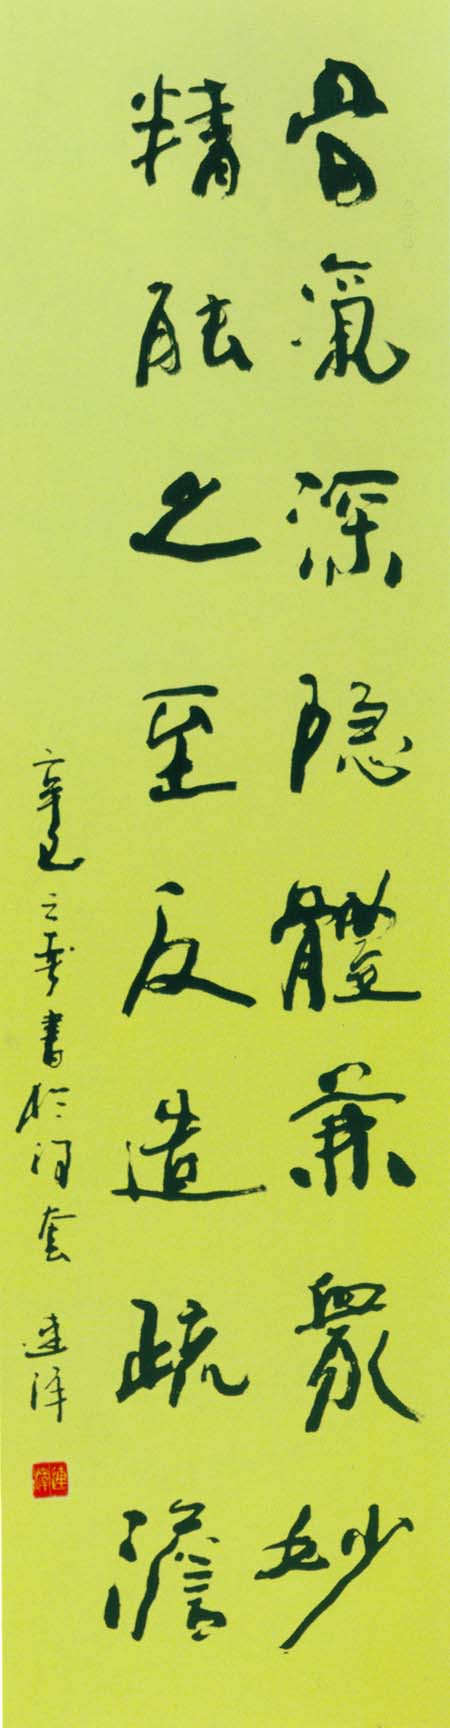 骨氣深隐體兼眾妙
精能之至反造疏澹
辛巳之春書於河套 連澤